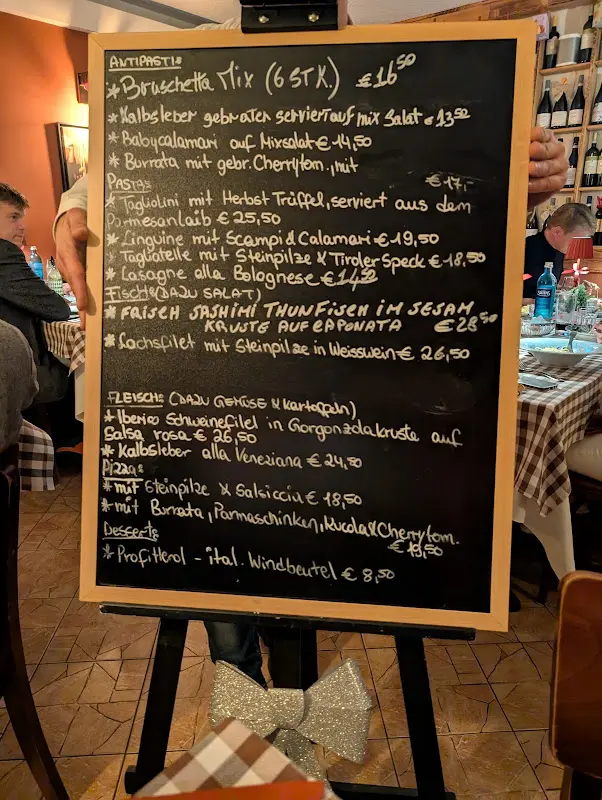 ANTIPASTI:
* Bruschetta Mix (6 STK.) €16⁵⁰
* Kalbsleber gebraten serviert auf mix Salat €13⁵⁰
* Babycalamari auf Mixsalat €14,50
* Burrata mit gebr. Cherrytom., mit
€17,-
PASTA:
* Tagliolini mit Herbst Trüffel, serviert aus dem
Parmesanlaib €25,50
* Linguine mit Scampi & Calamari €19,50
* Tagliatelle mit Steinpilze & Tiroler Speck €18,50
* Lasagne alla Bolognese €14⁵⁰
Fisch: (DAZU SALAT)
* FRISCH SASHIMI THUNFISCH IM SESAM
KRUSTE AUF CAPONATA €28⁵⁰
* Lachsfilet mit Steinpilze in Weisswein € 26,50
FLEISCH: (DAZU GEMÜSE & Kartoffeln)
* Iberico Schweinefilet in Gorgonzolakruste auf
Salsa rosa € 26,50
* Kalbsleber alla Veneziana € 24,50
Pizza:
* mit Steinpilze & Salsiccia € 18,50
* mit Burrata, Parmaschinken, Rucola & Cherrytom.
Desserts
* Profitterol - ital. Windbeutel € 8,50